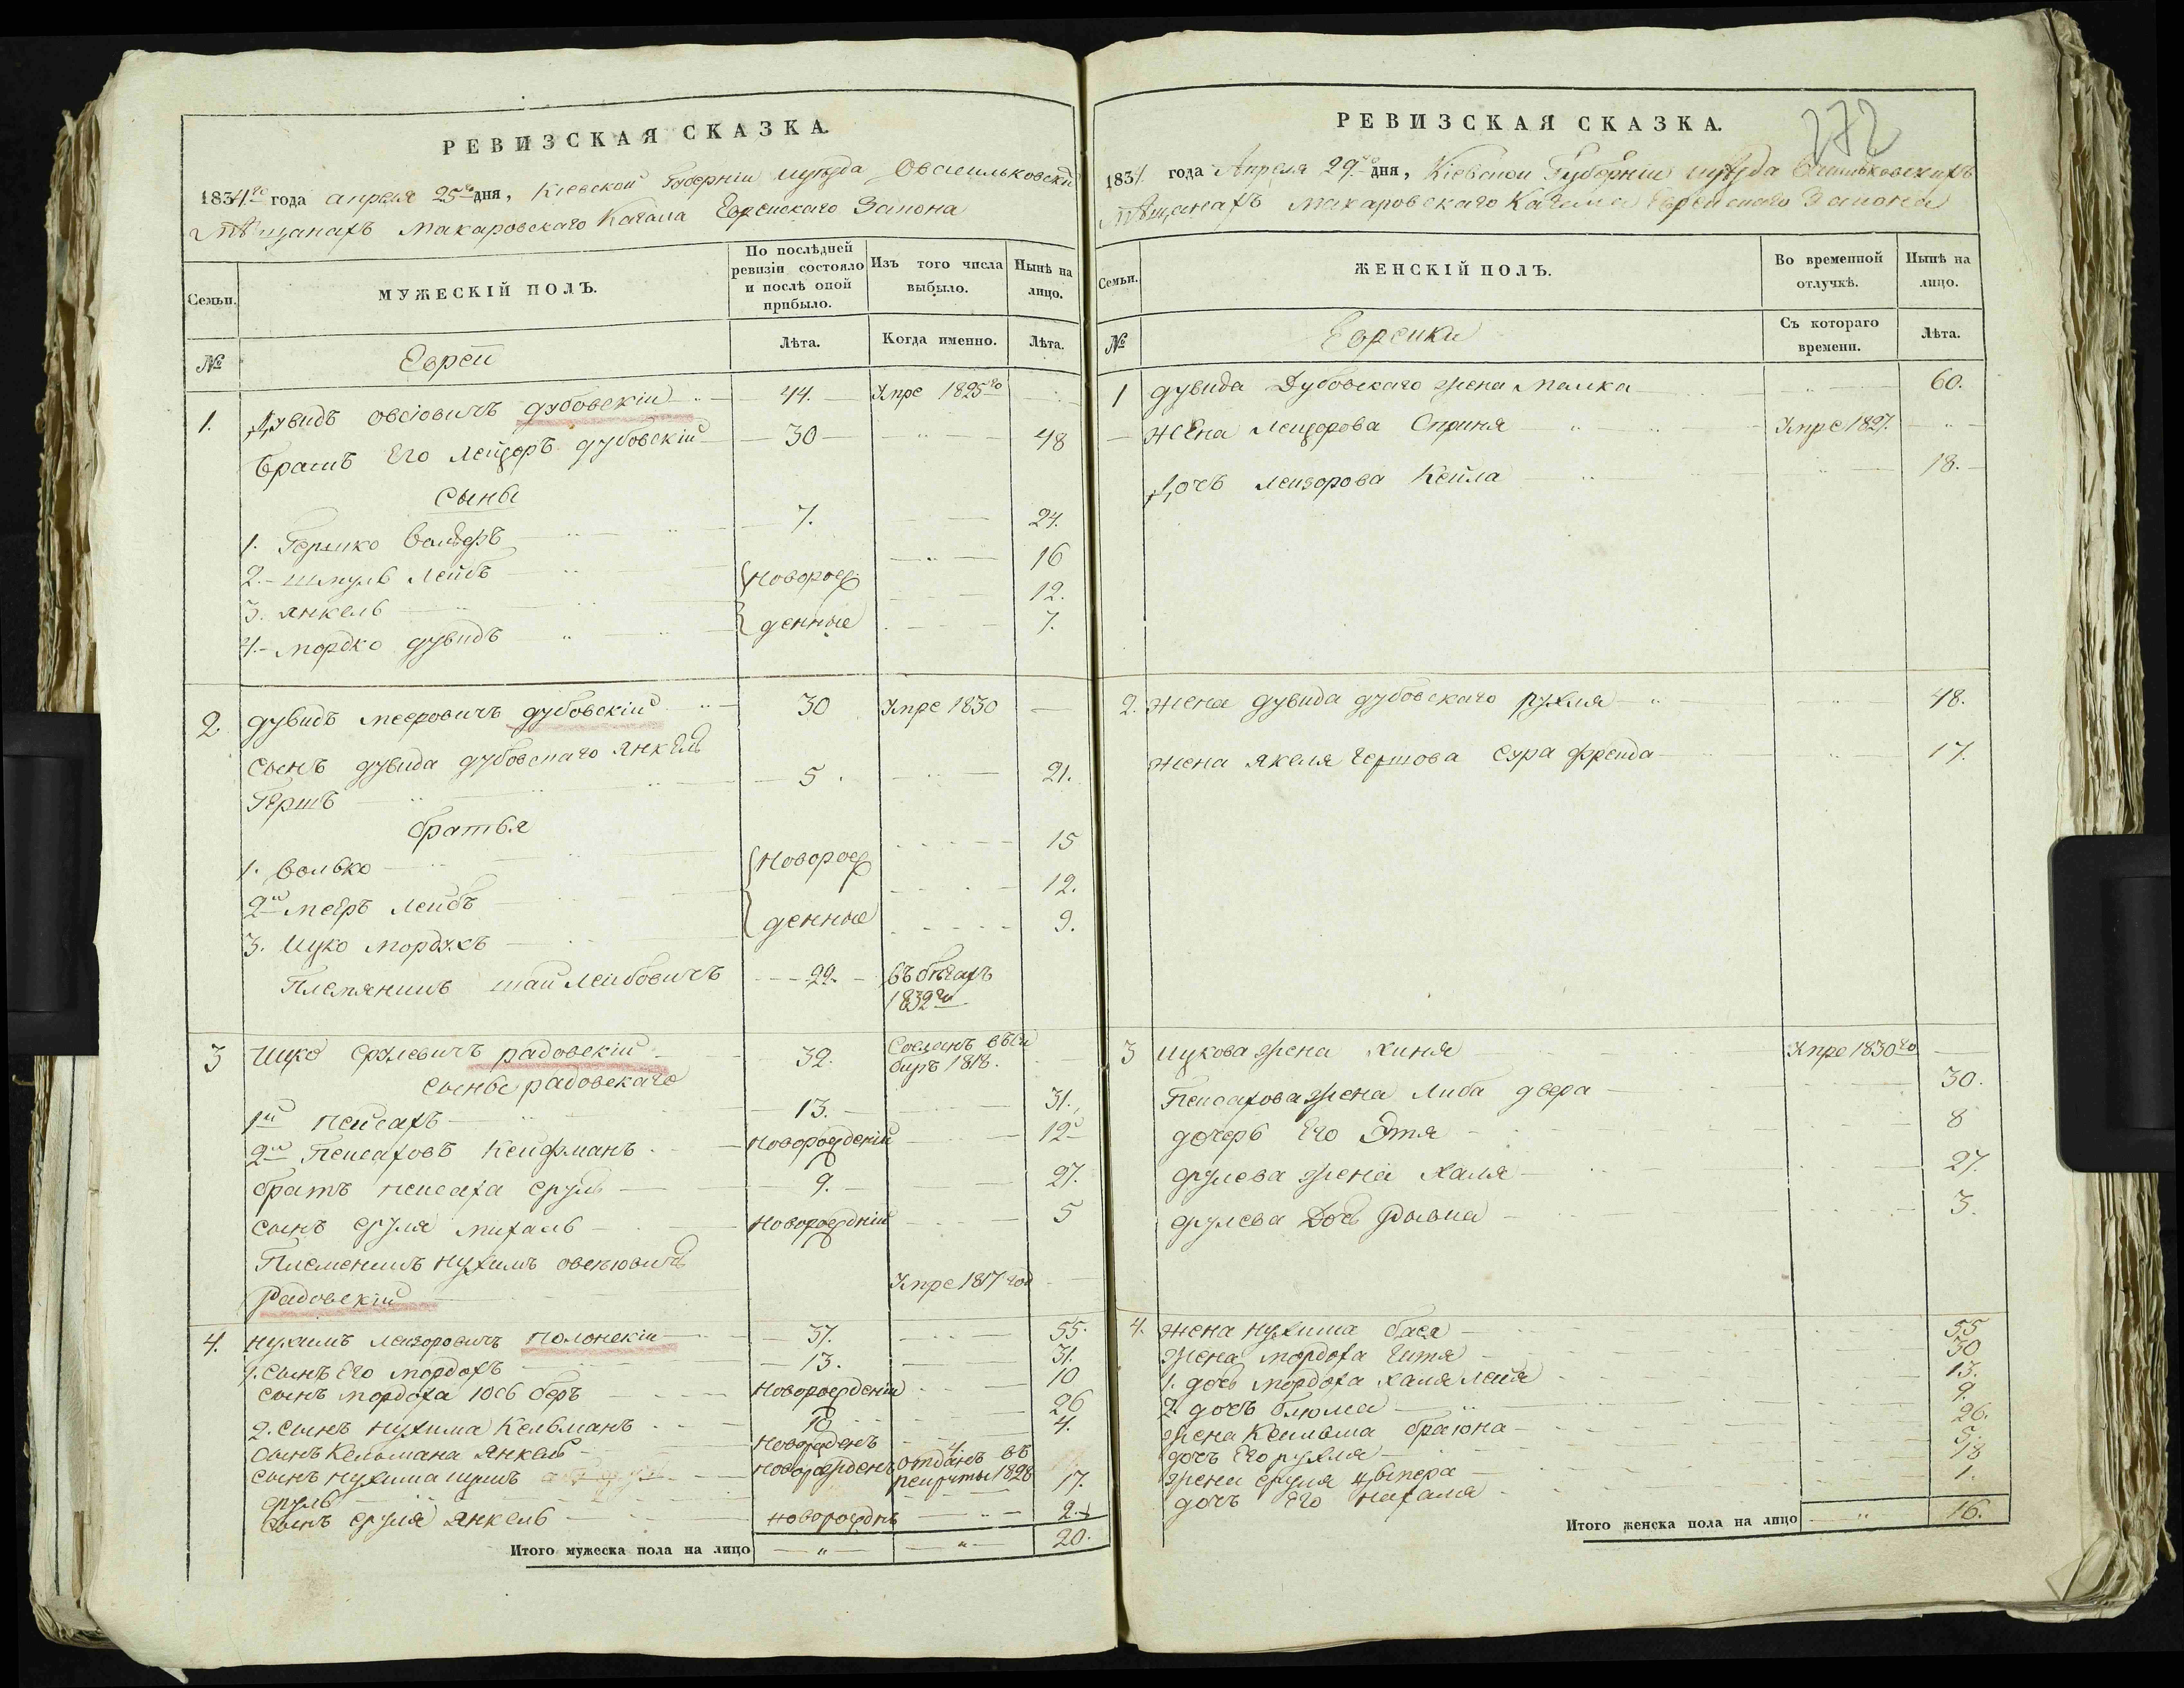 РЕВИЗСКАЯ СКАЗКА.
1834го года апреля 25го дня, Кіевской Губерніи уѣзда Овасильковски
Мѣщанахъ Макаровскаго Кагала Еврейскаго Закона
Семьи.
МУЖЕСКІЙ ПОЛЪ.
По послѣдней ревизіи состояло и послѣ оной прибыло.
Изъ того числа выбыло.
Нынѣ на лицо.
№
Евреи
Лѣта.
Когда именно.
Лѣта.
1. Дувидъ овсіовичъ дубовскій 44. Умре 1825го
Братъ Его Лейзоръ дубовскій 30 48
Сыны
1. Гершко Вольфъ 7. 24.
2. Шмуль Лейбъ 16
3. Янкель 12.
4. Мордко дувидъ 7.
{Новорож
денные
2. дувидъ мееровичъ дубовскій 30 Умре 1830
Сынъ дувида дубовскаго Янкель
Гершъ 5. 21.
братья
1. Волько 15
2й мееръ лейбъ 12.
3. Ицко Мордхъ 9.
{Новорож
денные
Племянникъ шай Лейбовичъ 22. въ бѣгахъ
1832го
3 Ицко срулевичъ радовскій 32. Сосланъ въ Си
биръ 1818.
Сыны радовскаго
1й пейсахъ 13. 31.
2й Пейсаховъ Кейфманъ Новорожденій 12
братъ пейсаха сруль 9. 27.
сынъ сруля михаль Новорождній 5
Племеникъ нухимъ овсіювичъ
Радовскій Умре 1817 год
4. нухимъ лейзоровичъ полонскій 37. 55.
1. Сынъ Его мордохъ 13. 31.
сынъ мордоха Іосъ беръ Новорожденій 10
2. сынъ нухима Кельманъ 10 26
Сынъ Кельмана Янкель Новорожденъ 4.
сынъ нухима Новорожденъ 4. отданъ въ
рекруты 1828
сруль 17.
Сынъ сруля Янкель новорожднъ 2.
Итого мужеска пола на лицо 20.
РЕВИЗСКАЯ СКАЗКА.
272
1834 года Апреля 29го дня, Кіевской Губерніи уѣзда Васильковскихъ
Мѣщанахъ Макаровскаго Кагала Еврейскаго Закона
Семьи.
ЖЕНСКІЙ ПОЛЪ.
Во временной отлучкѣ.
Нынѣ на лицо.
№
Еврейки
Съ котораго времени.
Лѣта.
1 дувида Дубовскаго жена малка 60.
Жена Лейзорова Сприня Умре 1827.
Дочь Лейзорова Кейла 18.
2. жена дувида дубовскаго рухля 48.
жена якеля Гершова Сура фрейда 17.
3 Ицкова жена Хиня Умре 1830го
Пейсахова жена Либа двера 30.
дочерь Его Этя 8
срулева жена Халя 27.
срулева Дочь Рывка 3.
4. жена нухима бася 55
жена мордоха Гитя 30
1. дочь мордоха Хаия лейя 13.
2. дочь блюма 9.
жена Кельмана браюна 26.
дочь Его рухля 5.
жена сруля Ципера 18
дочь Его нахама 1.
Итого женска пола на лицо 16.